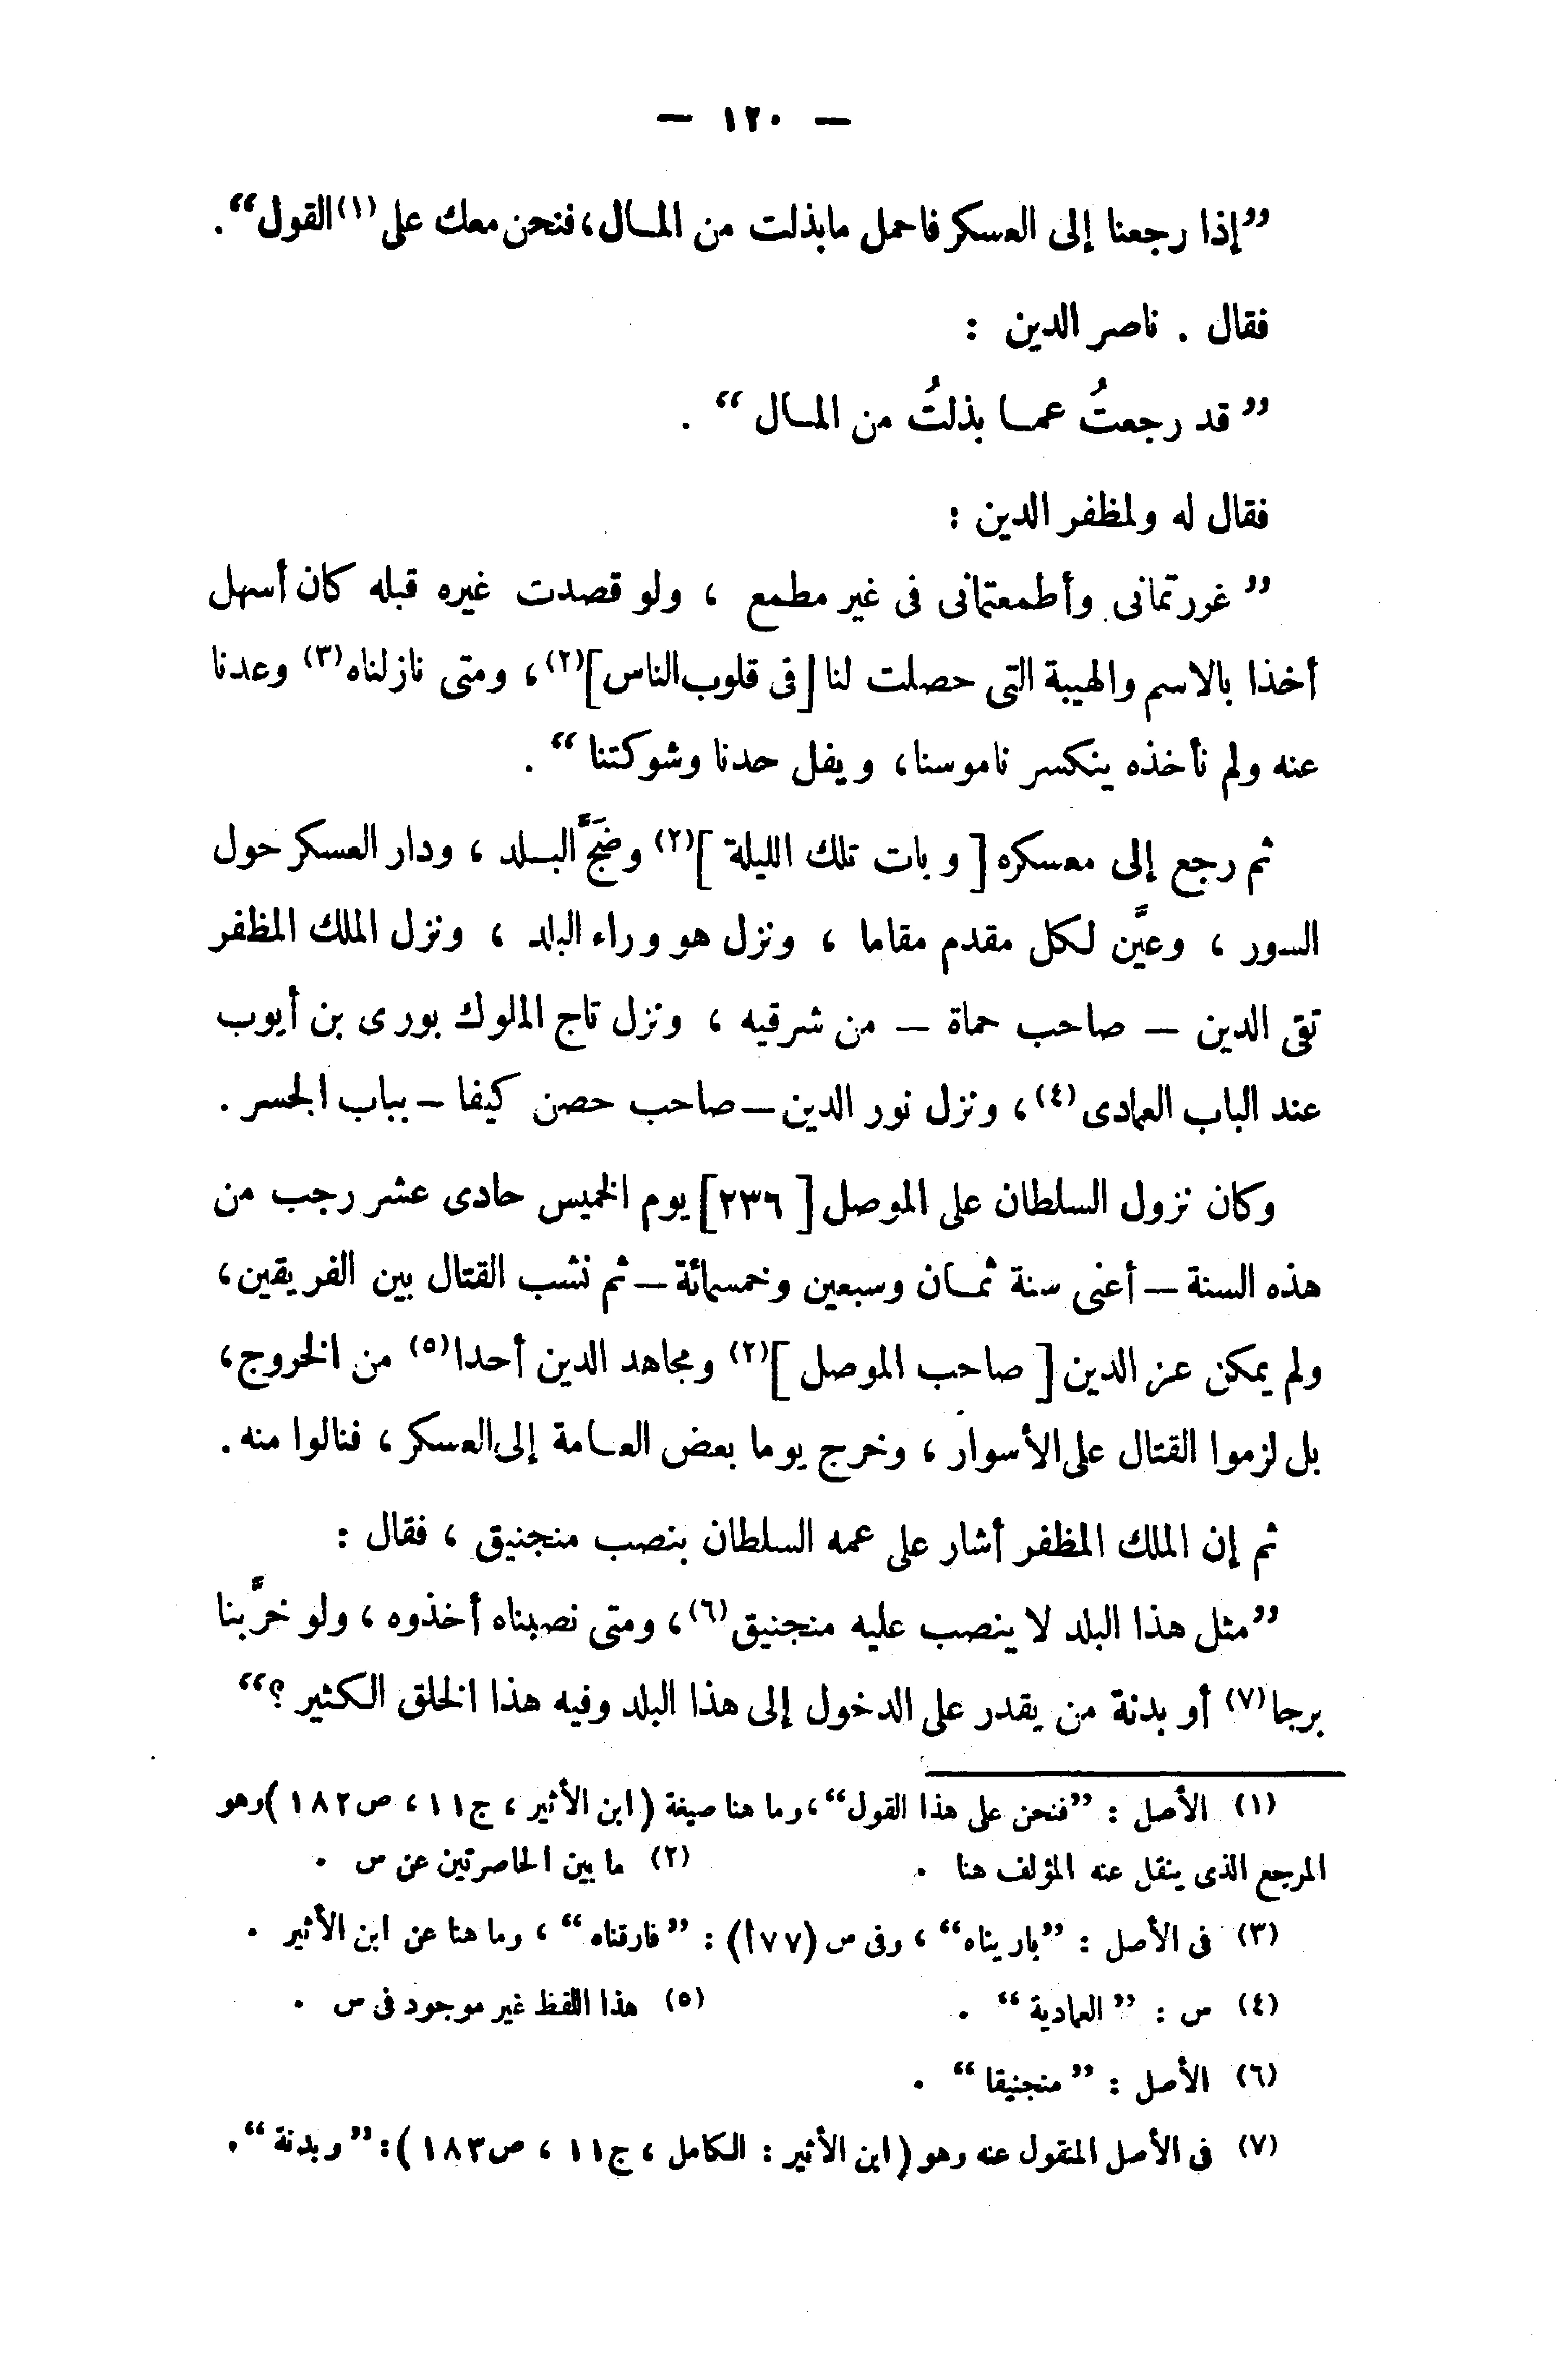 — ١٢٠ —
”إذا رجعنا إلى العسكر فاحمل ما بذلت من المال، فنحن معك على (١) القول“.
فقال . ناصر الدين :
” قد رجعتُ عما بذلتُ من المال “ .
فقال له ولمظفر الدين :
” غررتمانى وأطمعتمانى فى غير مطمع ، ولو قصدت غيره قبله كان أسهل
أخذا بالاسم والهيبة التى حصلت لنا [فى قلوب الناس] (٢) ، ومتى نازلناه (٣) وعدنا
عنه ولم نأخذه ينكسر ناموسنا، ويفل حدنا وشوكتنا “ .
ثم رجع إلى معسكره [ وبات تلك الليلة ] (٢) وضَجَّ البلد ، ودار العسكر حول
السور ، وعيَّن لكل مقدم مقاما ، ونزل هو وراء البلد ، ونزل الملك المظفر
تقى الدين — صاحب حماة — من شرقيه ، ونزل تاج الملوك بورى بن أيوب
عند الباب العمادى (٤) ، ونزل نور الدين — صاحب حصن كيفا — بباب الجسر .
وكان نزول السلطان على الموصل [ ٢٣٦] يوم الخميس حادى عشر رجب من
هذه السنة — أعنى سنة ثمان وسبعين وخمسمائة — ثم نشب القتال بين الفريقين،
ولم يمكن عز الدين [ صاحب الموصل ] (٢) ومجاهد الدين أحدا (٥) من الخروج،
بل لزموا القتال على الأسوار ، وخرج يوما بعض العامة إلى العسكر ، فنالوا منه .
ثم إن الملك المظفر أشار على عمه السلطان بنصب منجنيق ، فقال :
”مثل هذا البلد لا ينصب عليه منجنيق (٦) ، ومتى نصبناه أخذوه ، ولو خرَّبنا
برجا (٧) أو بدنة من يقدر على الدخول إلى هذا البلد وفيه هذا الخلق الكثير ؟“
(١) الأصل : ”فنحن على هذا القول“، وما هنا صيغة (ابن الأثير ، ج١١ ، ص١٨٢ ) وهو
المرجع الذى ينقل عنه المؤلف هنا . (٢) ما بين الحاصرتين عن س .
(٣) فى الأصل : ”باريناه“ ، وفى س (٧٧أ) : ”فارقناه“ ، وما هنا عن ابن الأثير .
(٤) س : ”العمادية“ . (٥) هذا اللفظ غير موجود فى س .
(٦) الأصل : ”منجنيقا“ .
(٧) فى الأصل المنقول عنه وهو (ابن الأثير : الكامل ، ج١١ ، ص١٨٣ ) : ”وبدنة“.